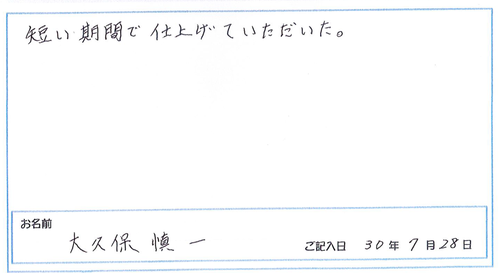 短い期間で仕上げていただいた。
お名前
大久保 慎一
ご記入日 30年 7月 28日